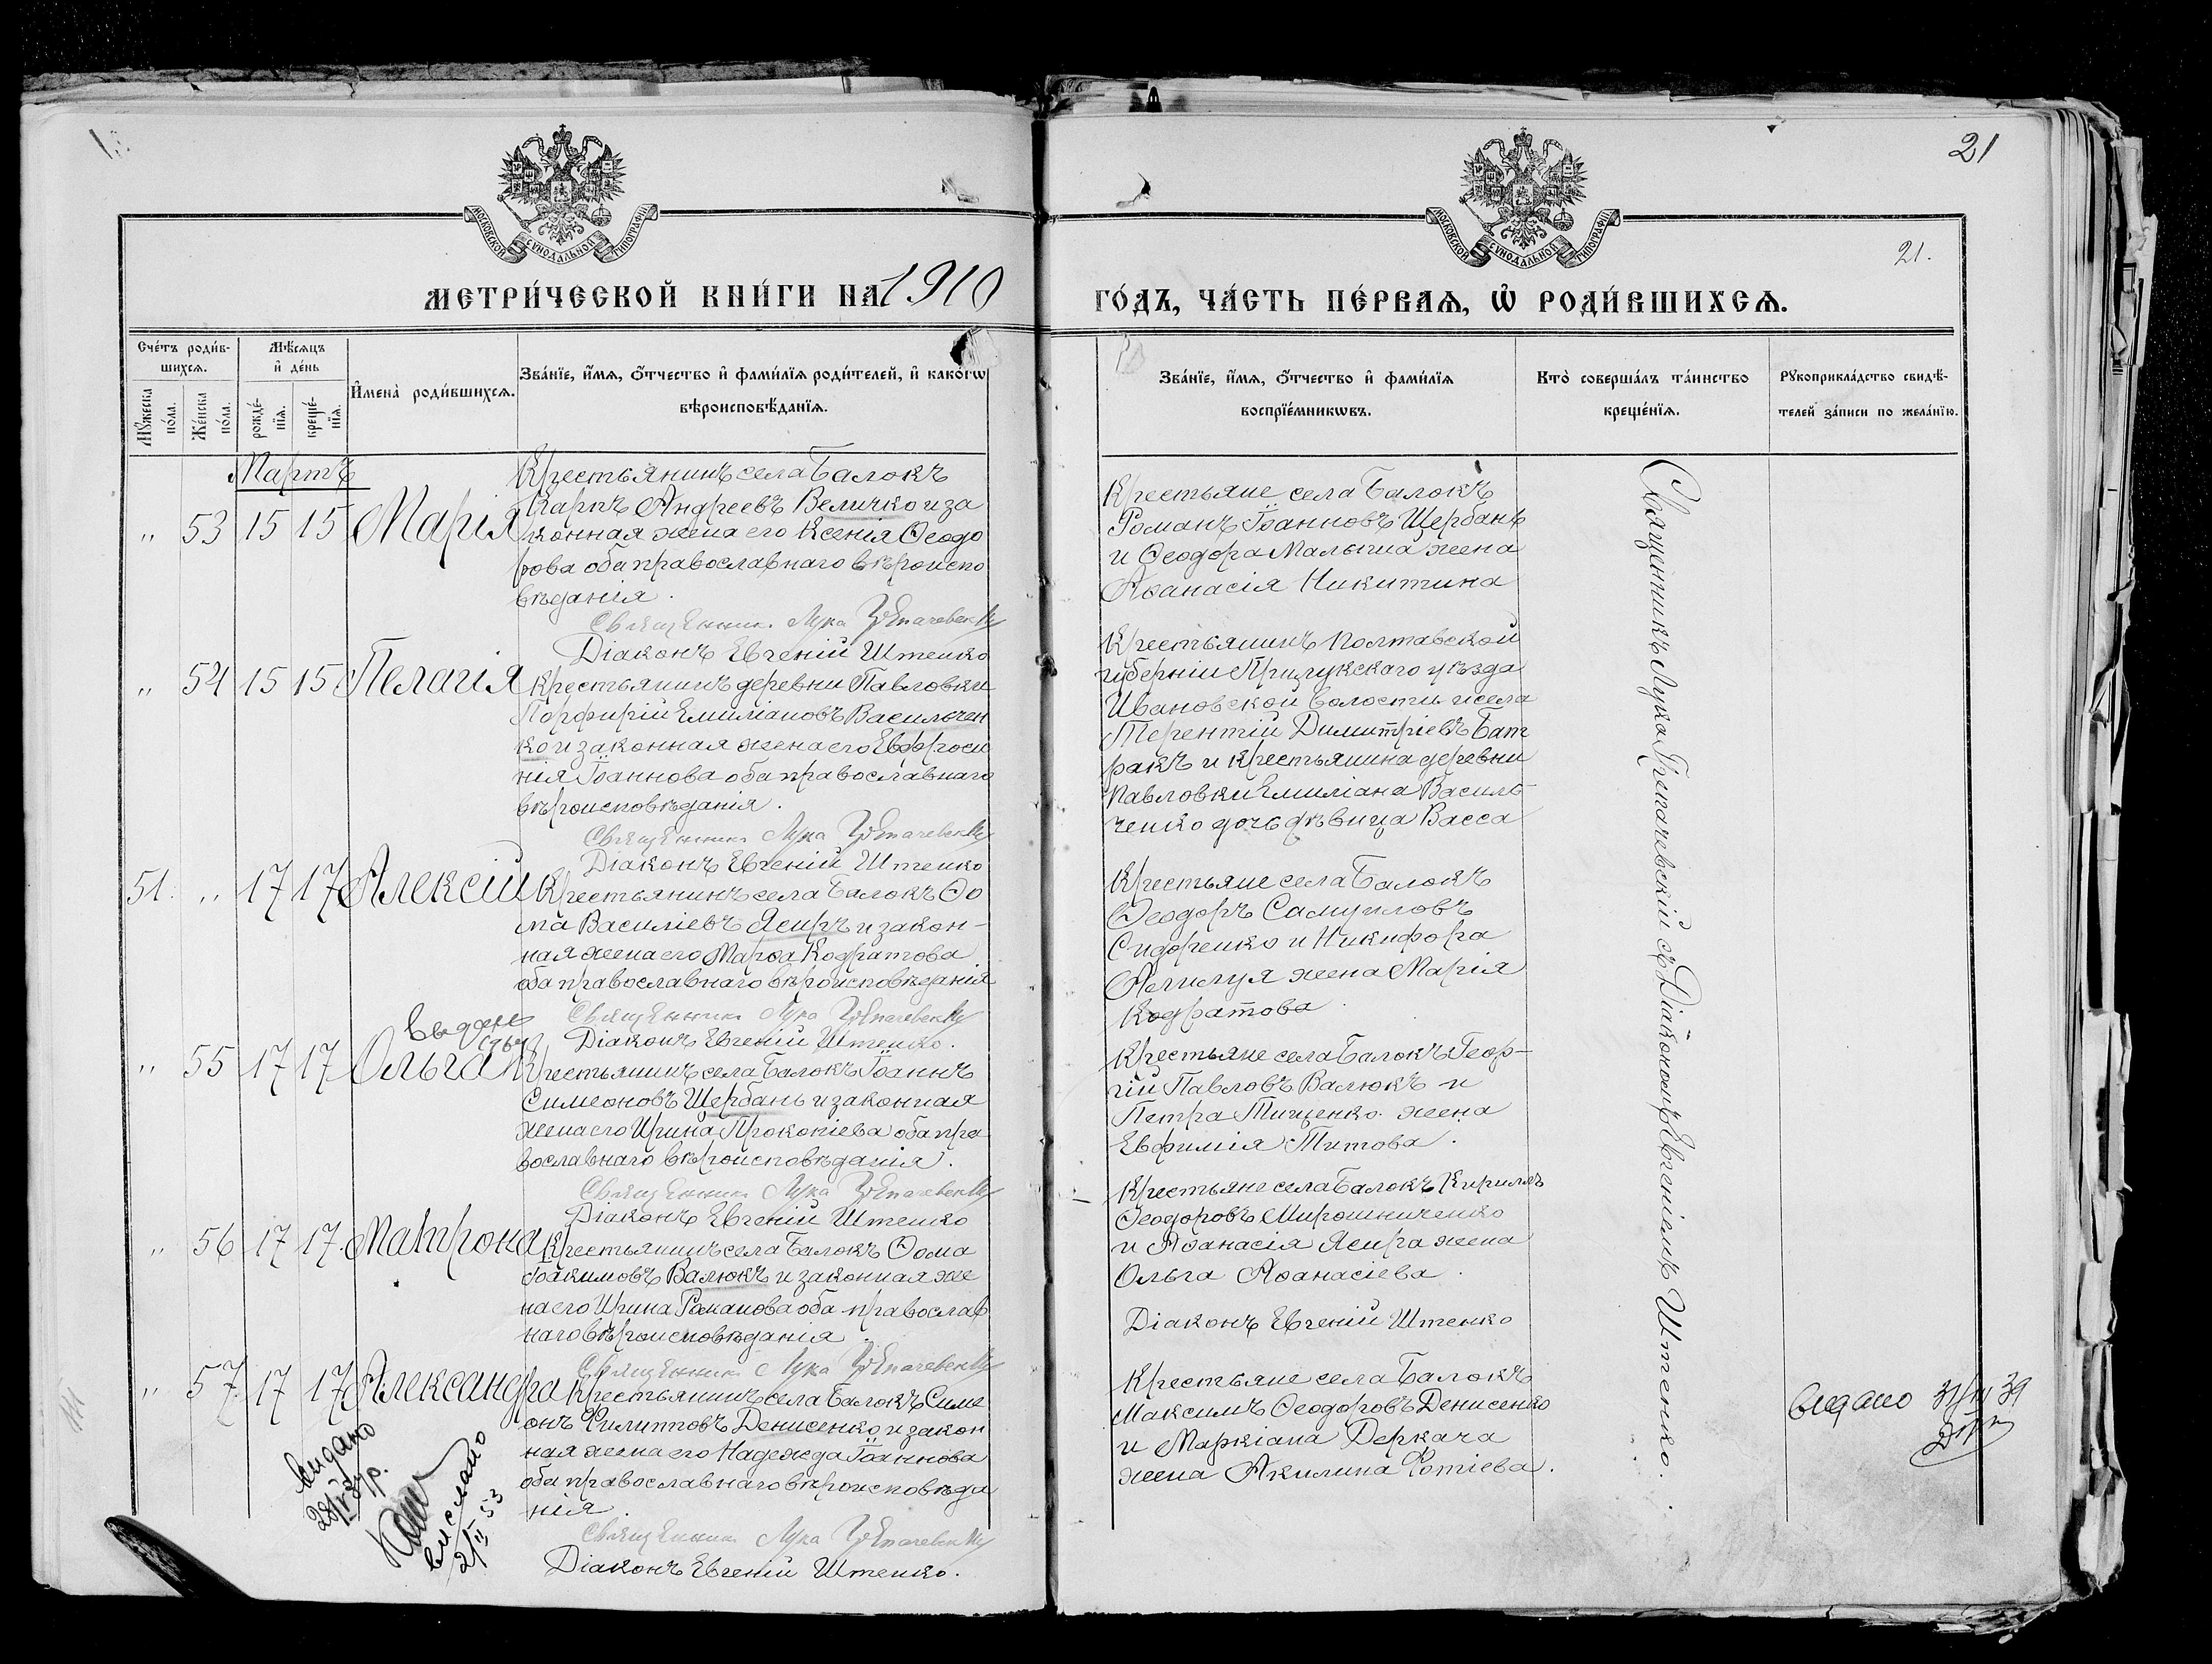 21
МОСКОВСКОЙ СУНОДАЛЬНОЙ ТИПОГРАФІИ
МОСКОВСКОЙ СУНОДАЛЬНОЙ ТИПОГРАФІИ
21.
МЕТРИ́ЧЕСКОЙ КНИ́ГИ НА 1910
ГО́ДЪ, ЧА́СТЬ ПЕ́РВАѦ, Ѡ҆ РОДИ́ВШИХСѦ.
Сче́тъ роди́в-
шихсѧ.
Мꙋ́жеска по́ла.
Же́нска по́ла.
Мѣ́сѧцъ
и҆ де́нь
рожде́-
нїѧ.
креще́-
нїѧ.
И҆мена̀ роди́вшихсѧ.
Зва́нїе, и҆́мѧ, ѻ҆́тчество и҆ фами́лїѧ роди́телей, и҆ како́гѡ
вѣроисповѣ́данїѧ.
Зва́нїе, и҆́мѧ, ѻ҆́тчество и҆ фами́лїѧ
воспрїе́мникѡвъ.
Кто̀ соверша́лъ та́инство
креще́нїѧ.
Рꙋкоприкла́дство свидѣ́-
телей за́писи по жела́нїю.
Мартъ
,, 53 15 15 Марія
Крестьянинъ села Балокъ
Карпъ Андреевъ Величко и за
конная жена его Ксенія Ѳеодо
рова оба православнаго вѣроиспо
вѣданія.
Священникъ Лука
Діаконъ Евгеній Штепко
Крестьяне села Балокъ
Романъ Іоанновъ Щербань
и Ѳеодора Малыша жена
Аѳанасія Никитина
,, 54 15 15 Пелагія
Крестьянинъ деревни Павловки
Порфирій Емиліановъ Васильчен
ко и законная жена его Евфроси
нія Іоаннова оба православнаго
вѣроисповѣданія.
Священникъ Лука
Діаконъ Евгеній Штепко
Крестьянинъ Полтавской
губерніи Прилукскаго уѣзда
Ивановской волости и села
Терентій Димитріевъ Бат
ракъ и крестьянина деревни
Павловки Емиліана Василь-
ченко дочь дѣвица Васса
51. ,, 17 17 Алексій
Крестьянинъ села Балокъ Ѳо
ма Василіевъ Ясиръ и закон-
ная жена его Марѳа Кодратова
оба православнаго вѣроисповѣданія
Священникъ Лука
Діаконъ Евгеній Штепко.
Крестьяне села Балокъ
Ѳеодоръ Самуиловъ
Сидоренко и Никифора
жена Марія
Кодратова
,, 55 17 17 Ольга
Крестьянинъ села Балокъ Іоаннъ
Симеоновъ Щербань и законная
жена его Ирина Прокопіева оба пра
вославнаго вѣроисповѣданія.
Священникъ Лука
Діаконъ Евгеній Штепко
Крестьяне села Балокъ Геор-
гій Павловъ Валюкъ и
Петра Тищенко жена
Евфимія Титова.
,, 56 17 17. Матрона
Крестьянинъ села Балокъ Ѳома
Іоакимовъ Валюкъ и законная же
на его Ирина Романова оба православ
наго вѣроисповѣданія.
Священникъ Лука
Крестьяне села Балокъ Кириллъ
Ѳеодоровъ Мирошниченко
и Аѳанасія Ясира жена
Ольга Аѳанасіева.
Діаконъ Евгеній Штепко
,, 57. 17 17 Александра
Крестьянинъ села Балокъ Симе
онъ Филипповъ Денисенко и закон
ная жена его Надежда Іоаннова
оба православнаго вѣроисповѣда
нія.
Священникъ Лука
Діаконъ Евгеній Штепко.
Крестьяне села Балокъ
Максимъ Ѳеодоровъ Денисенко
и Маркіана Деркача
жена Акилина Фотіева.
Священникъ Лука съ Діакономъ Евгеніемъ Штепко.
видано
вислано
2/II 53
видано